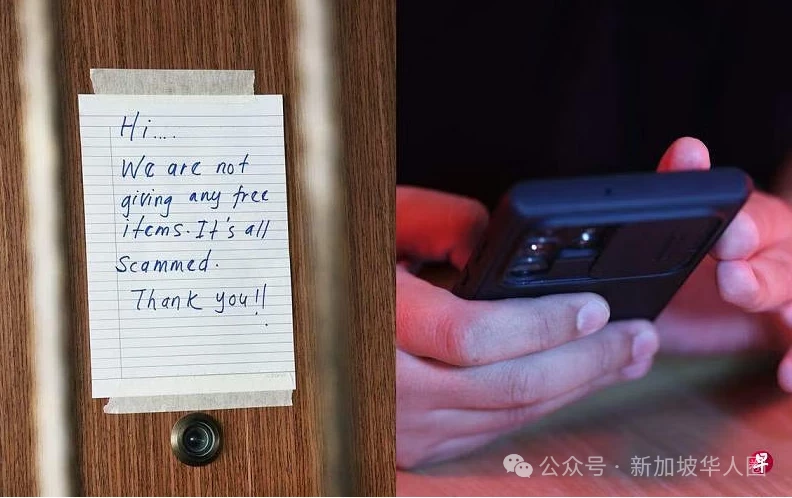 Hi....
We are not
giving any free
items. It's all
scammed.
Thank you!!
公众号·新加坡华人圈
早